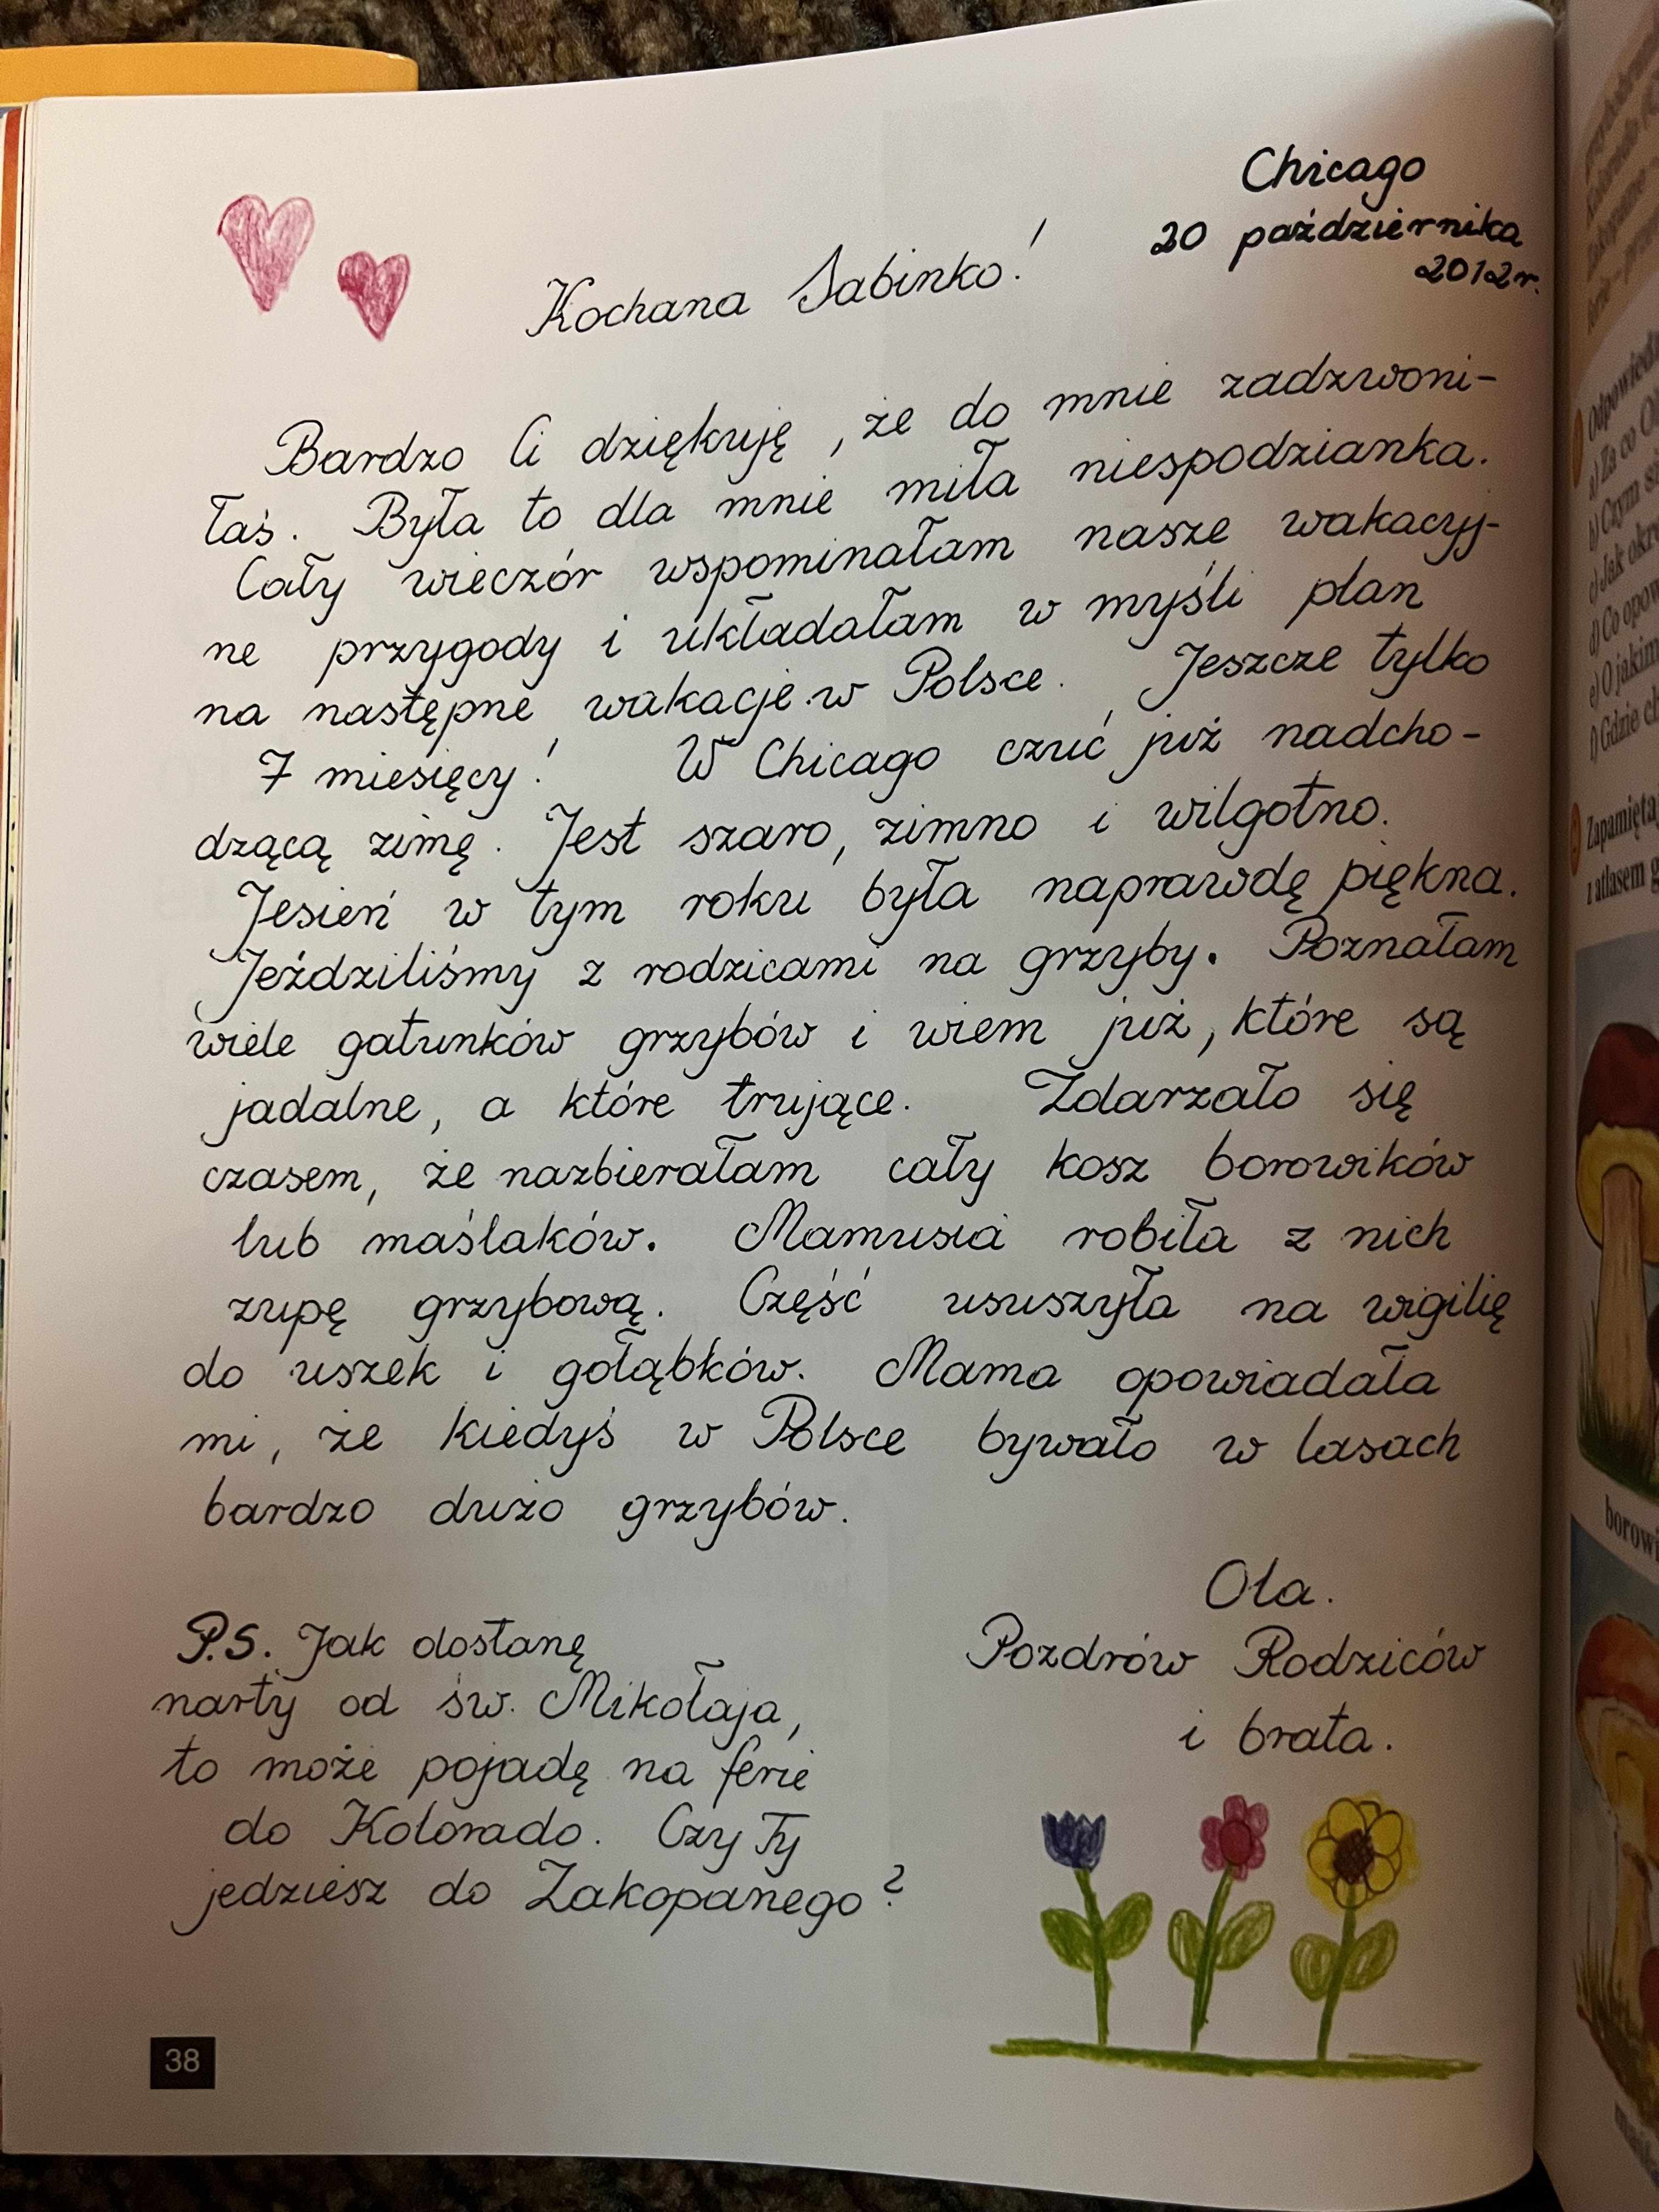 Chicago
20 października
2012r.
Kochana Sabinko!
Bardzo Ci dziękuję, że do mnie zadzwoni-
łaś. Była to dla mnie miła niespodzianka.
Cały wieczór wspominałam nasze wakacyj-
ne przygody i układałam w myśli plan
na następne wakacje w Polsce. Jeszcze tylko
7 miesięcy! W Chicago czuć już nadcho-
dzącą zimę. Jest szaro, zimno i wilgotno.
Jesień w tym roku była naprawdę piękna.
Jeździliśmy z rodzicami na grzyby. Poznałam
wiele gatunków grzybów i wiem już, które są
jadalne, a które trujące. Zdarzało się
czasem, że nazbierałam cały kosz borowików
lub maślaków. Mamusia robiła z nich
zupę grzybową. Część ususzyła na wigilię
do uszek i gołąbków. Mama opowiadała
mi, że kiedyś w Polsce bywało w lasach
bardzo dużo grzybów.
Ola.
Pozdrów Rodziców
i brata.
P.S. Jak dostanę
narty od św. Mikołaja,
to może pojadę na ferie
do Kolorado. Czy Ty
jedziesz do Zakopanego?
38
a) Za co
b) Czym
c) Jak
d) Co
e) O jakim
f) Gdzie
z atlasem